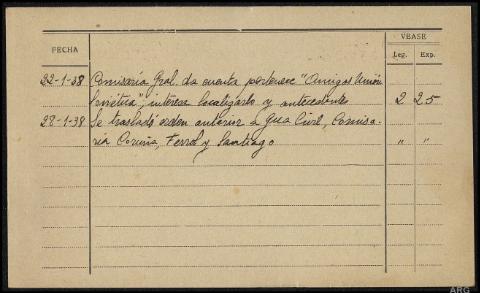 FECHA
VEASE
Leg. Exp.
22-1-38 Comisaría Gral. da cuenta pertenece "Amigos Unión
Soviética", interesa localizarlo y antecedentes 2 25
28-1-38 Se trasladó orden anterior a Gua Civil, Comisa-
ría Coruña, Ferrol y Santiago " "
ARG